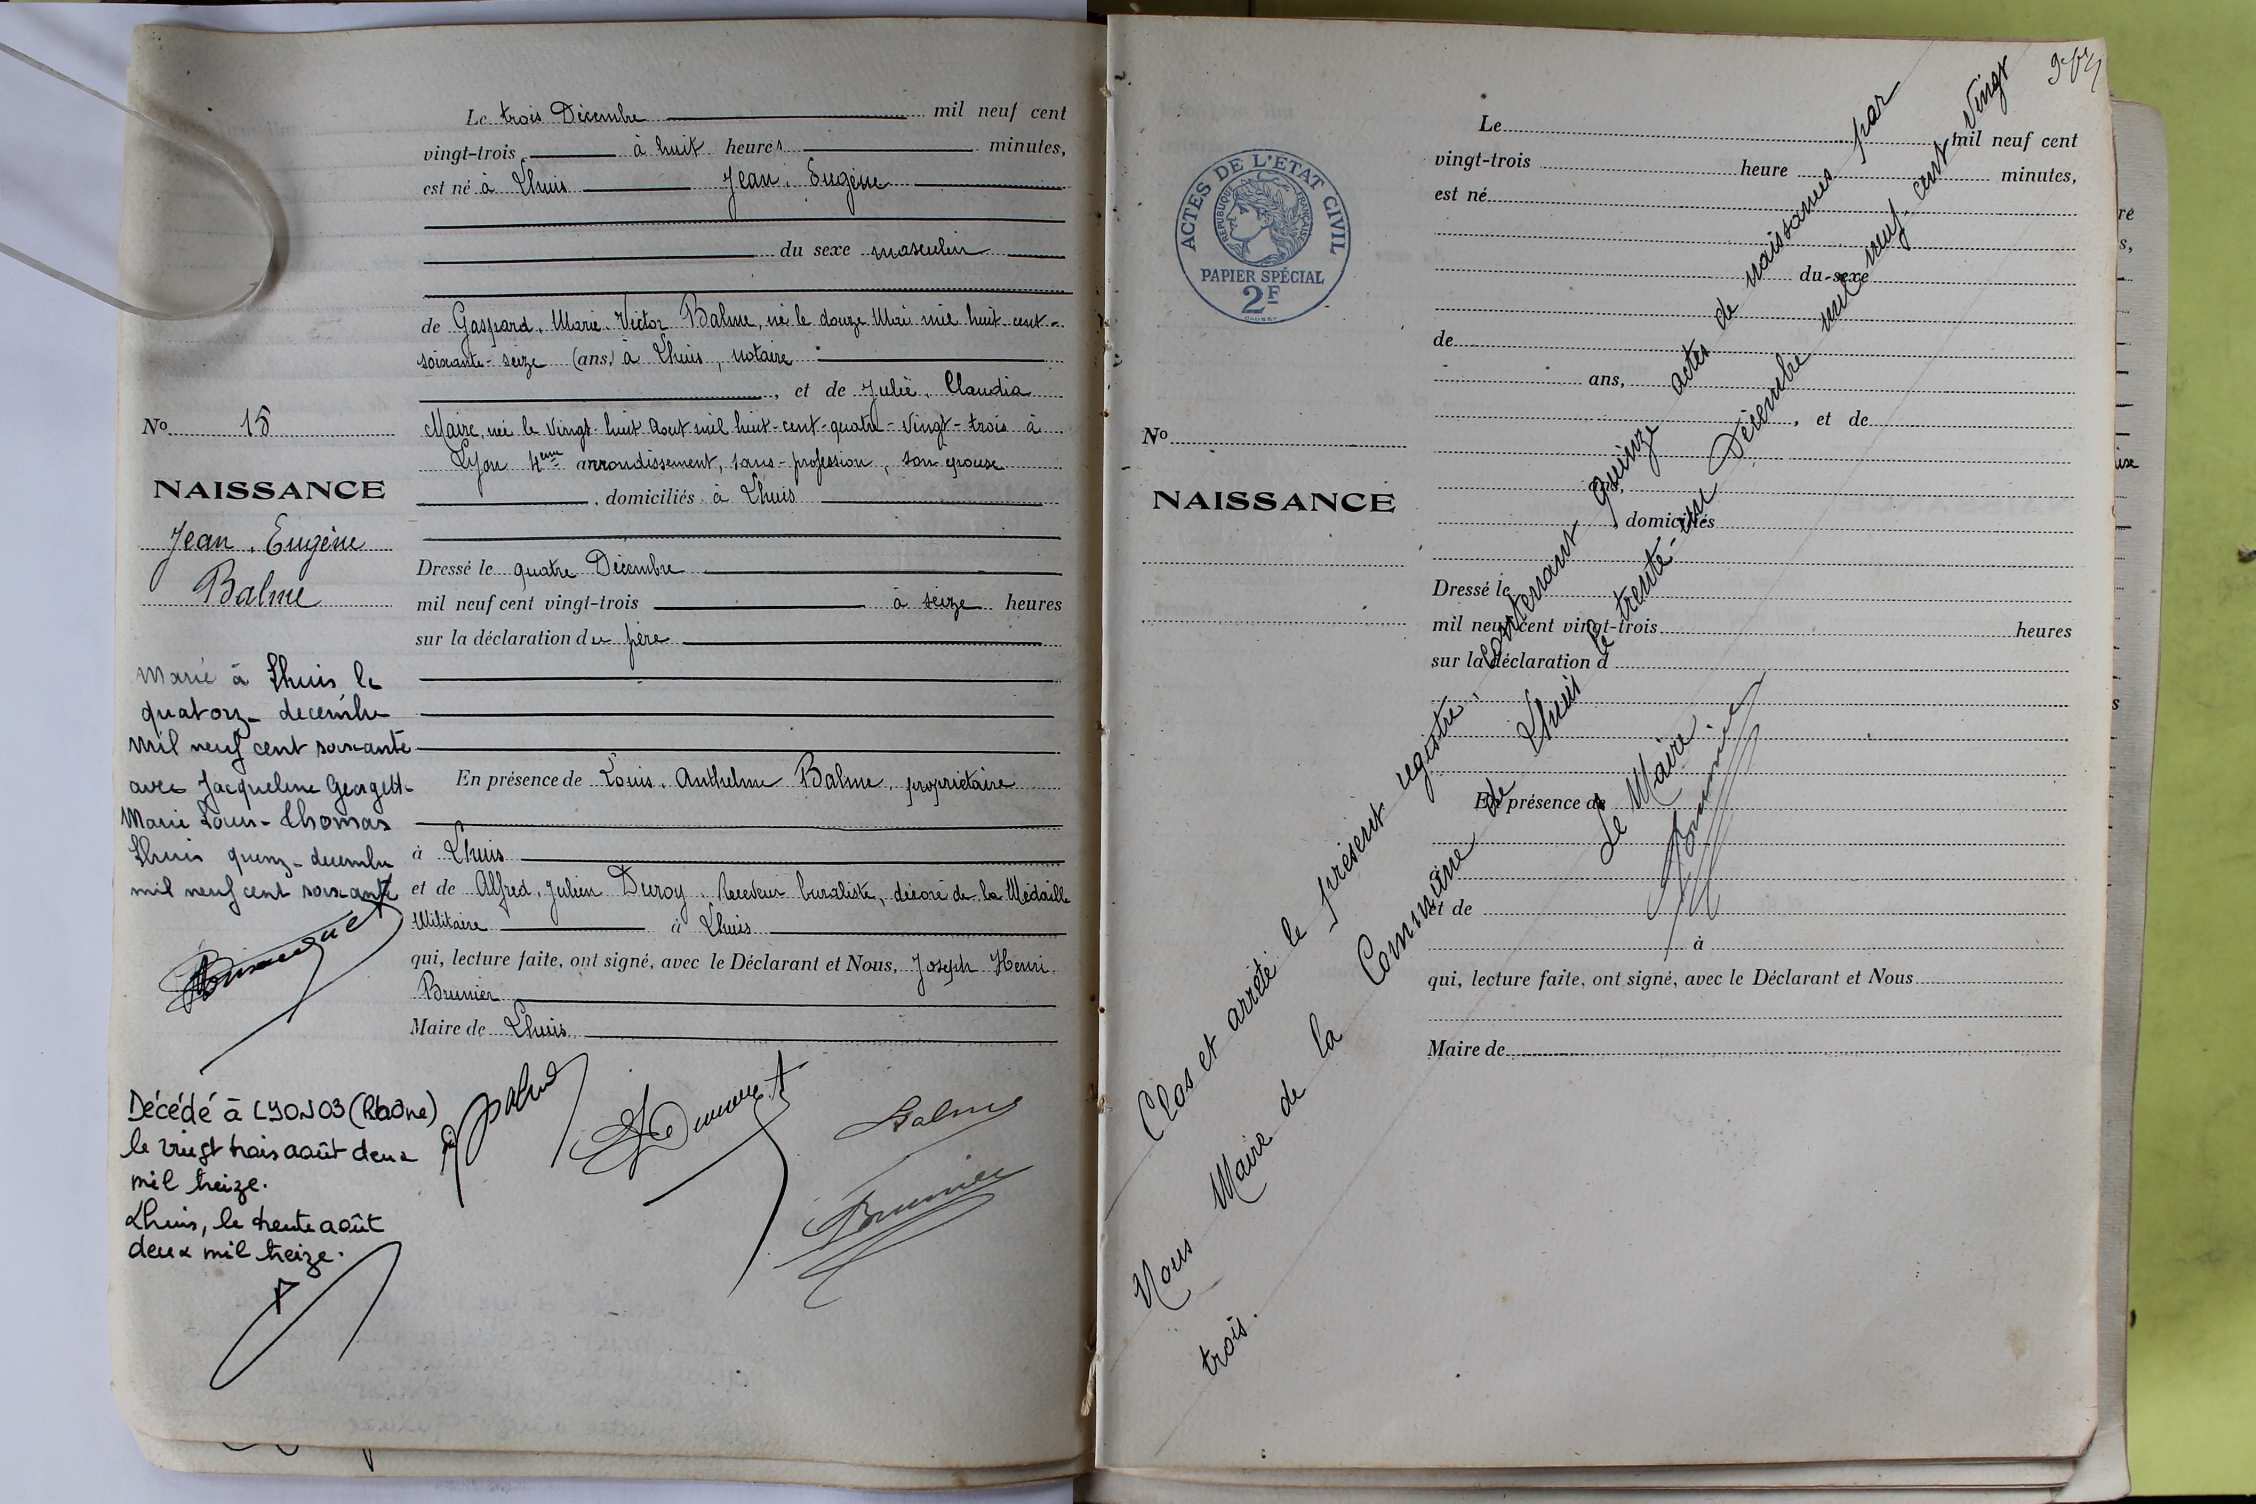 Le trois Décembre mil neuf cent
vingt-trois à huit heures minutes,
est né à Lhuis Jean, Eugène
du sexe masculin
de Gaspard, Marie, Victor Balme, né le douze Mai mil huit-cent-
soixante-seize (ans,) à Lhuis, notaire
, et de Julie, Claudia
Maire, née le vingt-huit Aout mil huit-cent-quatre-vingt-trois à
Lyon 4eme arrondissement, sans-profession, son épouse
, domiciliés à Lhuis
No 15
NAISSANCE
Jean, Eugène
Balme
Dressé le quatre Décembre
mil neuf cent vingt-trois à seize heures
sur la déclaration du père
En présence de Louis, Anthelme Balme, propriétaire
à Lhuis
et de Alfred, Julien Duroy, Receveur buraliste, décoré de la Médaille
Militaire à Lhuis
qui, lecture faite, ont signé, avec le Déclarant et Nous, Joseph Henri
Brunier
Maire de Lhuis
Marié à Lhuis le
quatorze decembre
mil neuf cent soixante
avec Jacqueline Georgette
Marie Louise Thomas
Lhuis quinze decembre
mil neuf cent soixante
Décédé à LYON 03 (Rhône)
le vingt trois août deux
mil treize.
Lhuis, le trente août
deux mil treize.
Balme
Balme
Brunier
ACTES DE L'ETAT CIVIL
REPUBLIQUE FRANÇAISE
PAPIER SPÉCIAL
2F
Le mil neuf cent
vingt-trois heure minutes,
est né
du sexe
de
ans,
, et de
No
NAISSANCE
ans,
, domiciliés
Dressé le
mil neuf cent vingt-trois heures
sur la déclaration d
En présence de
et de
à
qui, lecture faite, ont signé, avec le Déclarant et Nous
Maire de
Clos et arrêté le présent registre, contenant quinze actes de naissances par
Nous Maire de la Commune de Lhuis le trente-un Décembre mil neuf-cent vingt
trois.
Le Maire
Brunier